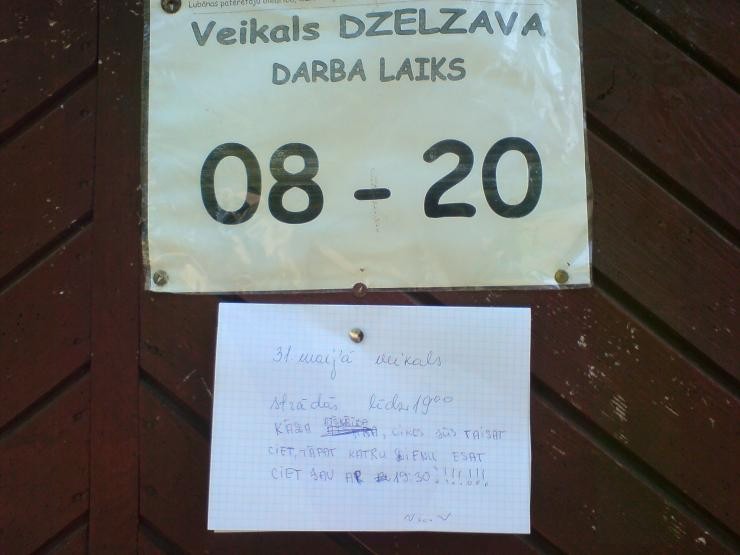 Lubānas patērētāju
Veikals DZELZAVA
DARBA LAIKS
08 - 20
31 maijā veikals
strādās līdz 19⁰⁰
KĀDA STARPĪBA, CIKOS JŪS TAISAT
CIET, TĀPAT KATRU DIENU ESAT
CIET JAU AP 19:30 !!!!!!